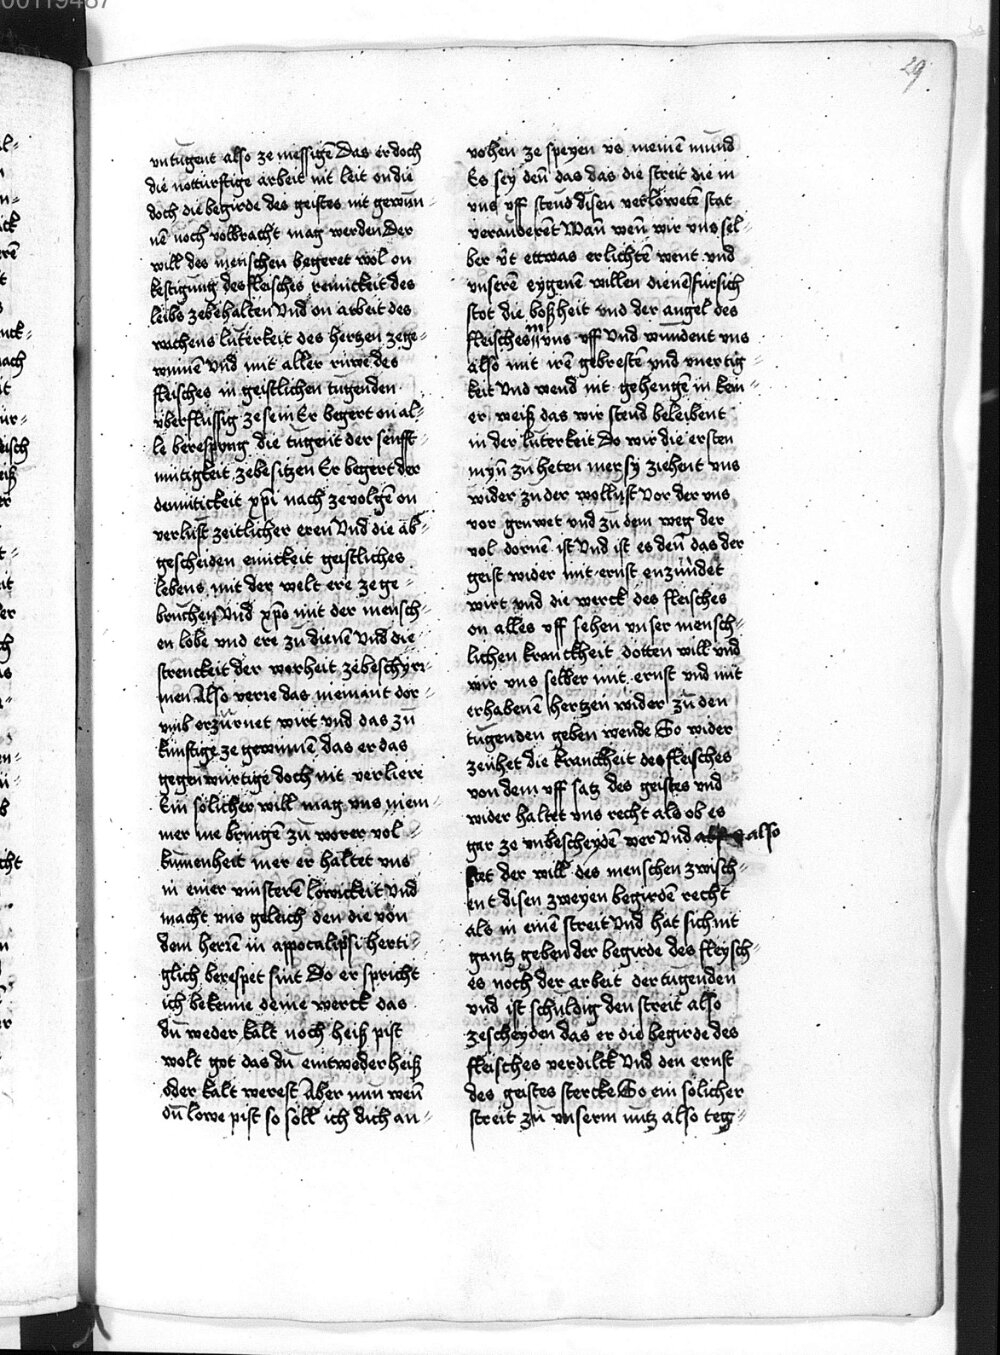 00119487
29
vntugent also ze messigē Das er doch
die notturftige arbeit nit leit on die
doch die begirde des geistes nit gewun⸗
nē noch volbracht mag werden Der
will des menschen begeret wol on
kestigung des fleisches reinickeit des
leibs ze behalten Vnd on arbeit des
wachens luterkeit des hertzen ze ge⸗
winnē Vnd mit aller ruwe des
fleisches in geistlichen tugenden
vberflussig ze sein Er begert on al⸗
le berespung die tugent der senfft⸗
mutigkeit ze besitzen Er begert der
demutickeit xp̄i nach ze volgē on
verlust zeitlicher eren Vnd die ab⸗
gescheiden einickeit geistliches
lebens mit der welt ere ze ge⸗
bruchen Vnd xp̄o mit der mensch⸗
en lobe vnd ere zu dienē Vnd die
strenckeit der worheit ze beschyr⸗
men Also verre das niemant dor⸗
vmb erzurnet wirt vnd das zu
kunftige ze gewinnē das er das
gegenwurtige doch nit verliere
Ein solicher will mag vns niem⸗
mer me bringē zu worer vol⸗
kumenheit mer er haltet vns
in einer vinsterē lowickeit Vnd
macht vns gelich den die von
dem herrē in appocalipsi herti⸗
glich berespet sint Do er spricht
ich bekenne deine werck das
du weder kalt noch heiß pist
wolt got das du eintweder heiß
oder kalt werest Aber nun wen̄
du lowe pist so soll ich dich an⸗
vohen ze speyen vs meinē mund
Es sey den̄ das das die streit die in
vns vff stend disen verlowetē stat
veranderēt Wan̄ wen̄ wir vns sel⸗
ber v̈t ettwas erlichtē went vnd
vnserē eygenē willen dienē fursich
stot die boßheit vnd der angel des
fleisches in vns vff Vnd wundent vns
also mit irē gebrestē vnd vnertig⸗
keit Vnd wend nit gehengē in kein⸗
er weiß das wir stend beleibent
in der luterkeit Do wir die ersten
myn̄ zu heten mer sy ziehent vns
wider zu der wollust Vor der vns
vor gruwet vnd zu dem weg der
vol dornē ist Vnd ist es den̄ das der
geist wider mit ernst enzundet
wirt vnd die werck des fleisches
on alles vff sehen vnser mensch⸗
lichen kranckheit dotten will vnd
wir vns selber mit ernst vnd mit
erhabenē hertzen wider zu den
tugenden geben wende So wider
zeuhet die kranckheit des fleisches
von dem vff satz des geistes vnd
wider haltet vns recht als ob es
gar ze vnbescheydē wer Vnd also
stet der will des menschen zwisch⸗
ent disen zweyen begirdē recht
als in einē streit Vnd hat sich nit
gantz geben der begirde des fleysch⸗
es noch der arbeit der tugenden
vnd ist schuldig den streit also
ze scheyden das er die begirde des
fleisches verdilck Vnd den ernst
des geistes stercke So ein solicher
streit zu vnserm nutz also teg⸗